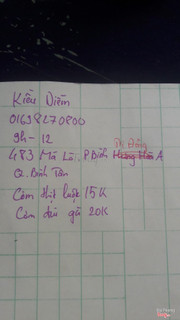 Kiều Diễm
01698270800
9h-12
483 Mã Lò. P. Bình Trị Đông A
Q. Bình Tân
Cơm thịt luộc 15K
Cơm đùi gà 20K